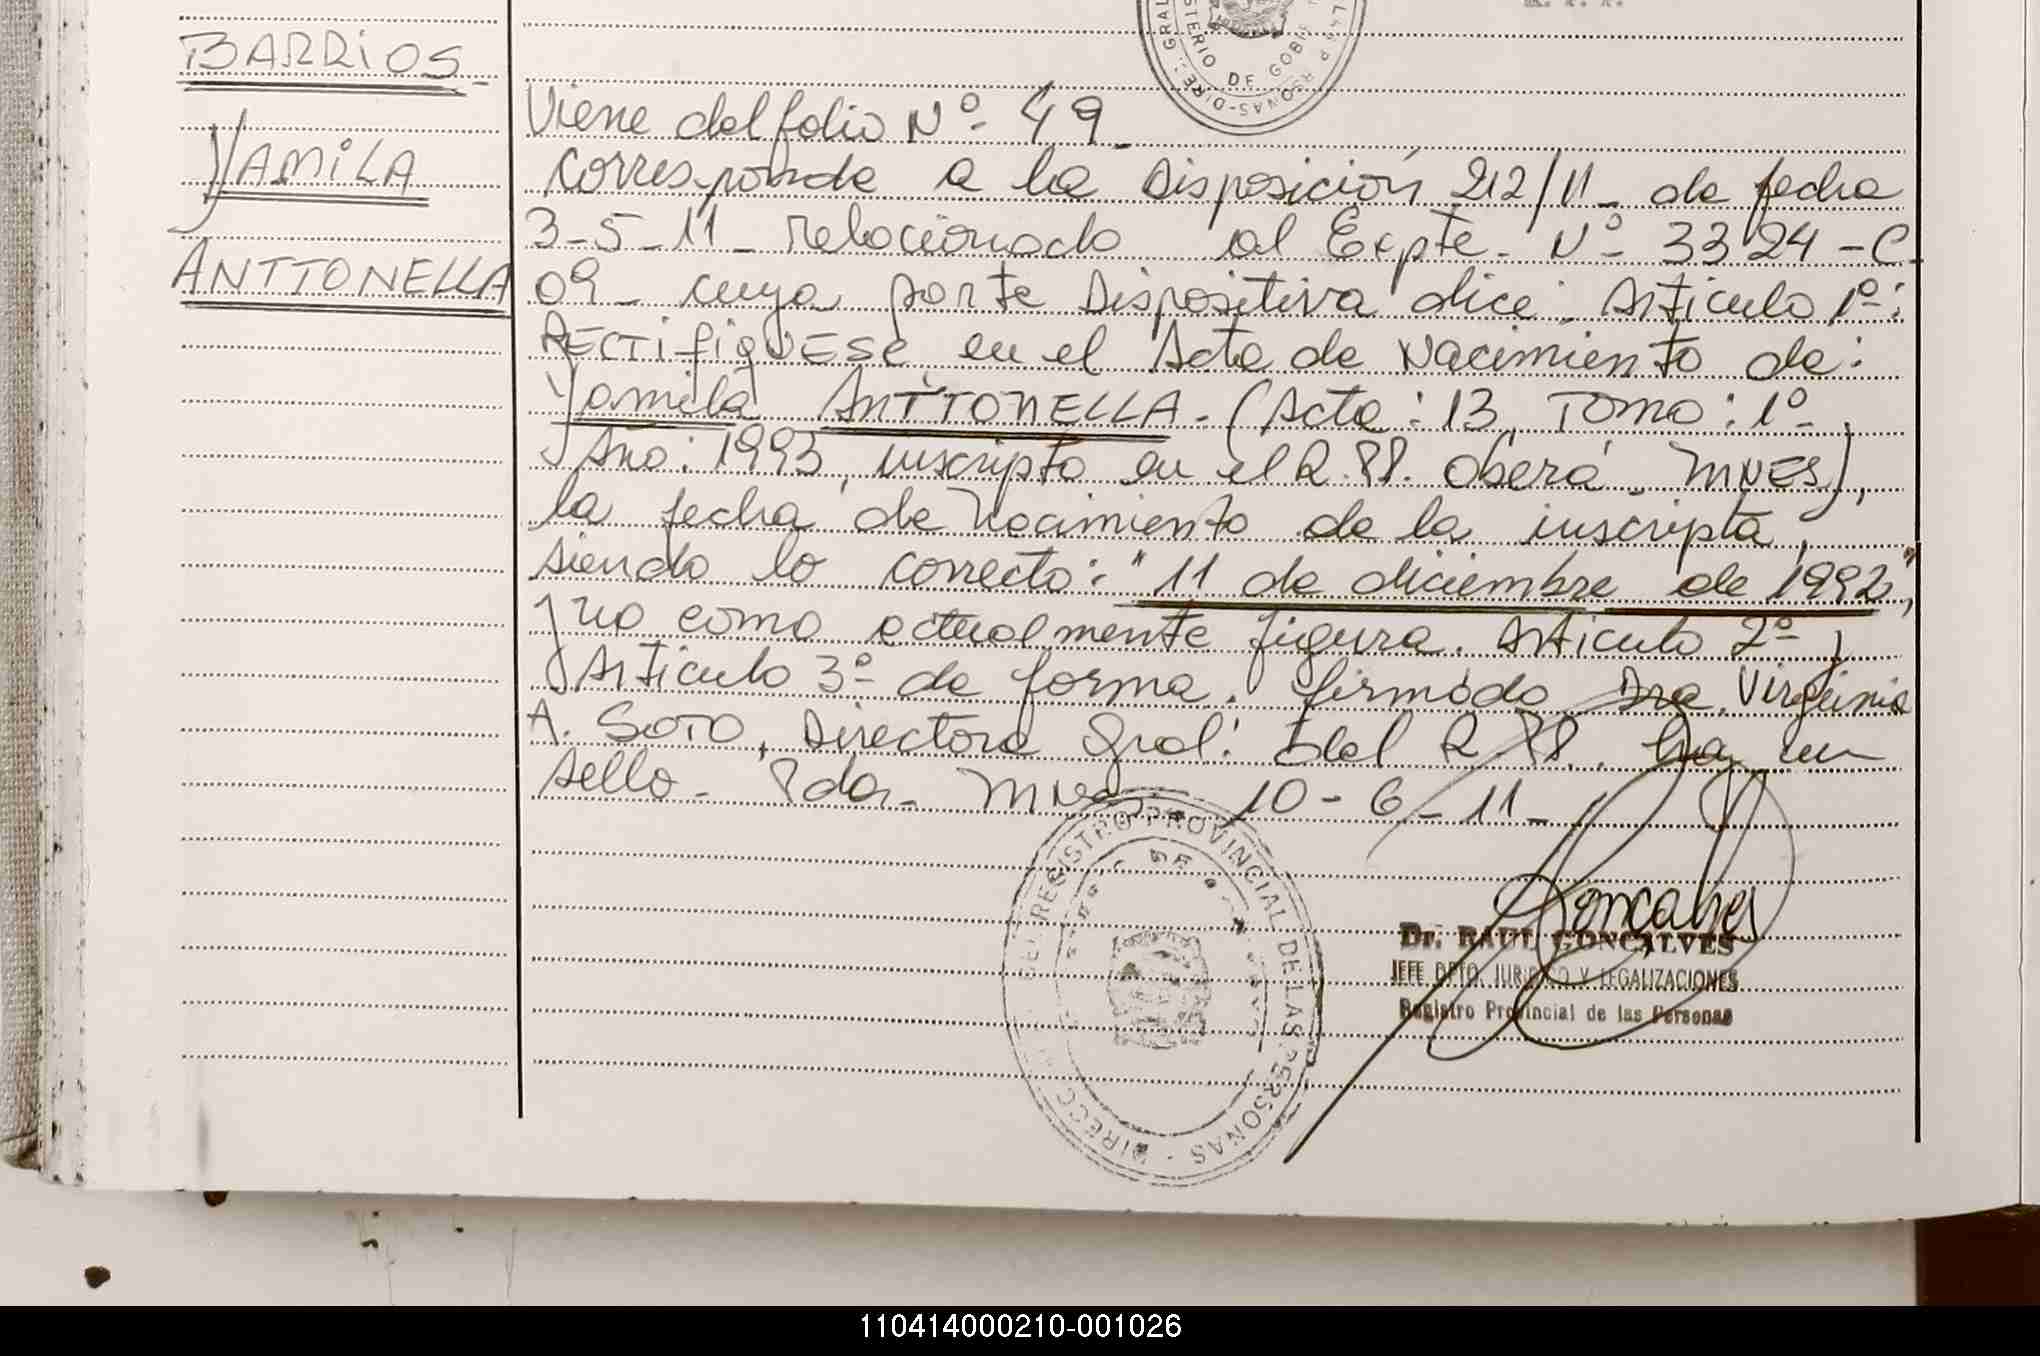 BARRIOS-
YAMiLA
ANTTONELLA
GRAL
MINISTERIO DE GOBIERNO
PERSONAS-DIREC
Viene del folio Nº- 49-
Corresponde a la Disposición 212/11- de fecha
3-5-11- relacionado al Expte- Nº- 3324-C-
09- cuya parte Dispositiva dice: Articulo 1º-:
RECTifiQUESE en el Acta de Nacimiento de:
Yamila ANTTONELLA- (Acta: 13, Tomo: 1º-,
Año: 1993, inscripta en el R.PP. Oberá- MNES),
la fecha de Nacimiento de la inscripta,
siendo lo correcto: "11 de diciembre de 1992",
y no como actualmente figura. Articulo 2º- y
Articulo 3º- de forma. firmado Dra. Virginia
A. SOTO, Directora Gral. del R.PP. Hay un
sello- Pdas- Mnes- 10-6-11-
DIRECC GRAL REGISTRO PROVINCIAL DE LAS PERSONAS
Goncalves
Dr. RAUL GONCALVES
JEFE DPTO. JURIDICO Y LEGALIZACIONES
Registro Provincial de las Personas
110414000210-001026